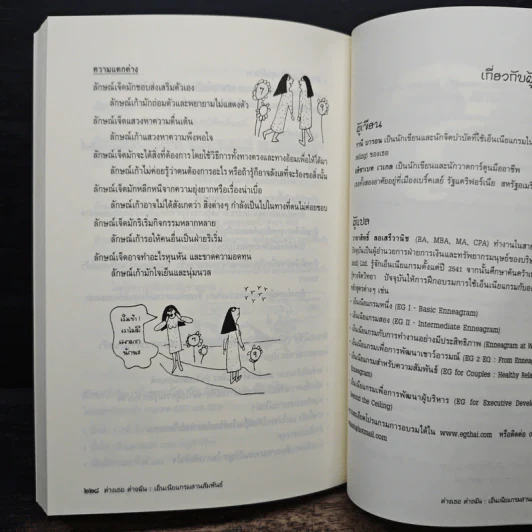 ความแตกต่าง
ลักษณ์เจ็ดมักชอบส่งเสริมตัวเอง
ลักษณ์เก้ามักถ่อมตัวและพยายามไม่แสดงตัว
ลักษณ์เจ็ดแสวงหาความตื่นเต้น
ลักษณ์เก้าแสวงหาความพึงพอใจ
ลักษณ์เจ็ดมักจะได้สิ่งที่ต้องการโดยใช้วิธีการทั้งทางตรงและทางอ้อมเพื่อให้ได้มา
ลักษณ์เก้าไม่ค่อยรู้ว่าตนต้องการอะไร หรือถ้ารู้ก็อาจลังเลที่จะร้องขอสิ่งนั้น
ลักษณ์เจ็ดมักหลีกหนีจากความยุ่งยากหรือเรื่องน่าเบื่อ
ลักษณ์เก้าอาจไม่ได้สังเกตว่า สิ่งต่างๆ กำลังเป็นไปในทางที่ตนไม่ค่อยชอบ
ลักษณ์เจ็ดมักริเริ่มกิจกรรมหลากหลาย
ลักษณ์เก้ารอให้คนอื่นเป็นฝ่ายริเริ่ม
ลักษณ์เจ็ดอาจทำอะไรหุนหัน และขาดความอดทน
ลักษณ์เก้ามักใจเย็นและนุ่มนวล
7
9
7
9
๒๒๘ ต่างเธอ ต่างฉัน : เอ็นเนียแกรมสานสัมพันธ์
เกี่ยวกับผู้
ผู้เขียน
เป็นนักเขียนและนักจิตบำบัดที่ใช้เอ็นเนียแกรมใน
ของเธอ
เป็นนักเขียนและนักวาดการ์ตูนมืออาชีพ
ทั้งสองอาศัยอยู่ที่เมืองเบิร์คเลย์ รัฐแคริฟอร์เนีย สหรัฐอเมริ
ผู้แปล
(BA, MBA, MA, CPA) ทำงานในสาย
เป็นผู้อำนวยการฝ่ายการเงินและทรัพยากรมนุษย์ของบริษั
Ltd. รู้จักเอ็นเนียแกรมตั้งแต่ปี 2541 จากนั้นศึกษาค้นคว้า
ปัจจุบันได้ให้การฝึกอบรมการใช้เอ็นเนียแกรมกับอง
เช่น
เอ็นเนียแกรมหนึ่ง (EG I - Basic Enneagram)
เอ็นเนียแกรมสอง (EG II - Intermediate Enneagram)
เอ็นเนียแกรมกับการทำงานอย่างมีประสิทธิภาพ (Enneagram at W
เอ็นเนียแกรมเพื่อการพัฒนาเชาว์อารมณ์ (EG 2 EQ : From Enneag
เอ็นเนียแกรมสำหรับความสัมพันธ์ (EG for Couples : Healthy Rela
Enneagram)
เอ็นเนียแกรมเพื่อการพัฒนาผู้บริหาร (EG for Executive Devel
beyond the Ceiling)
โปรแกรมการอบรมได้ใน www.egthai.com หรือติดต่อ
ต่างเธอ ต่างฉัน : เอ็นเนียแกรมสาน